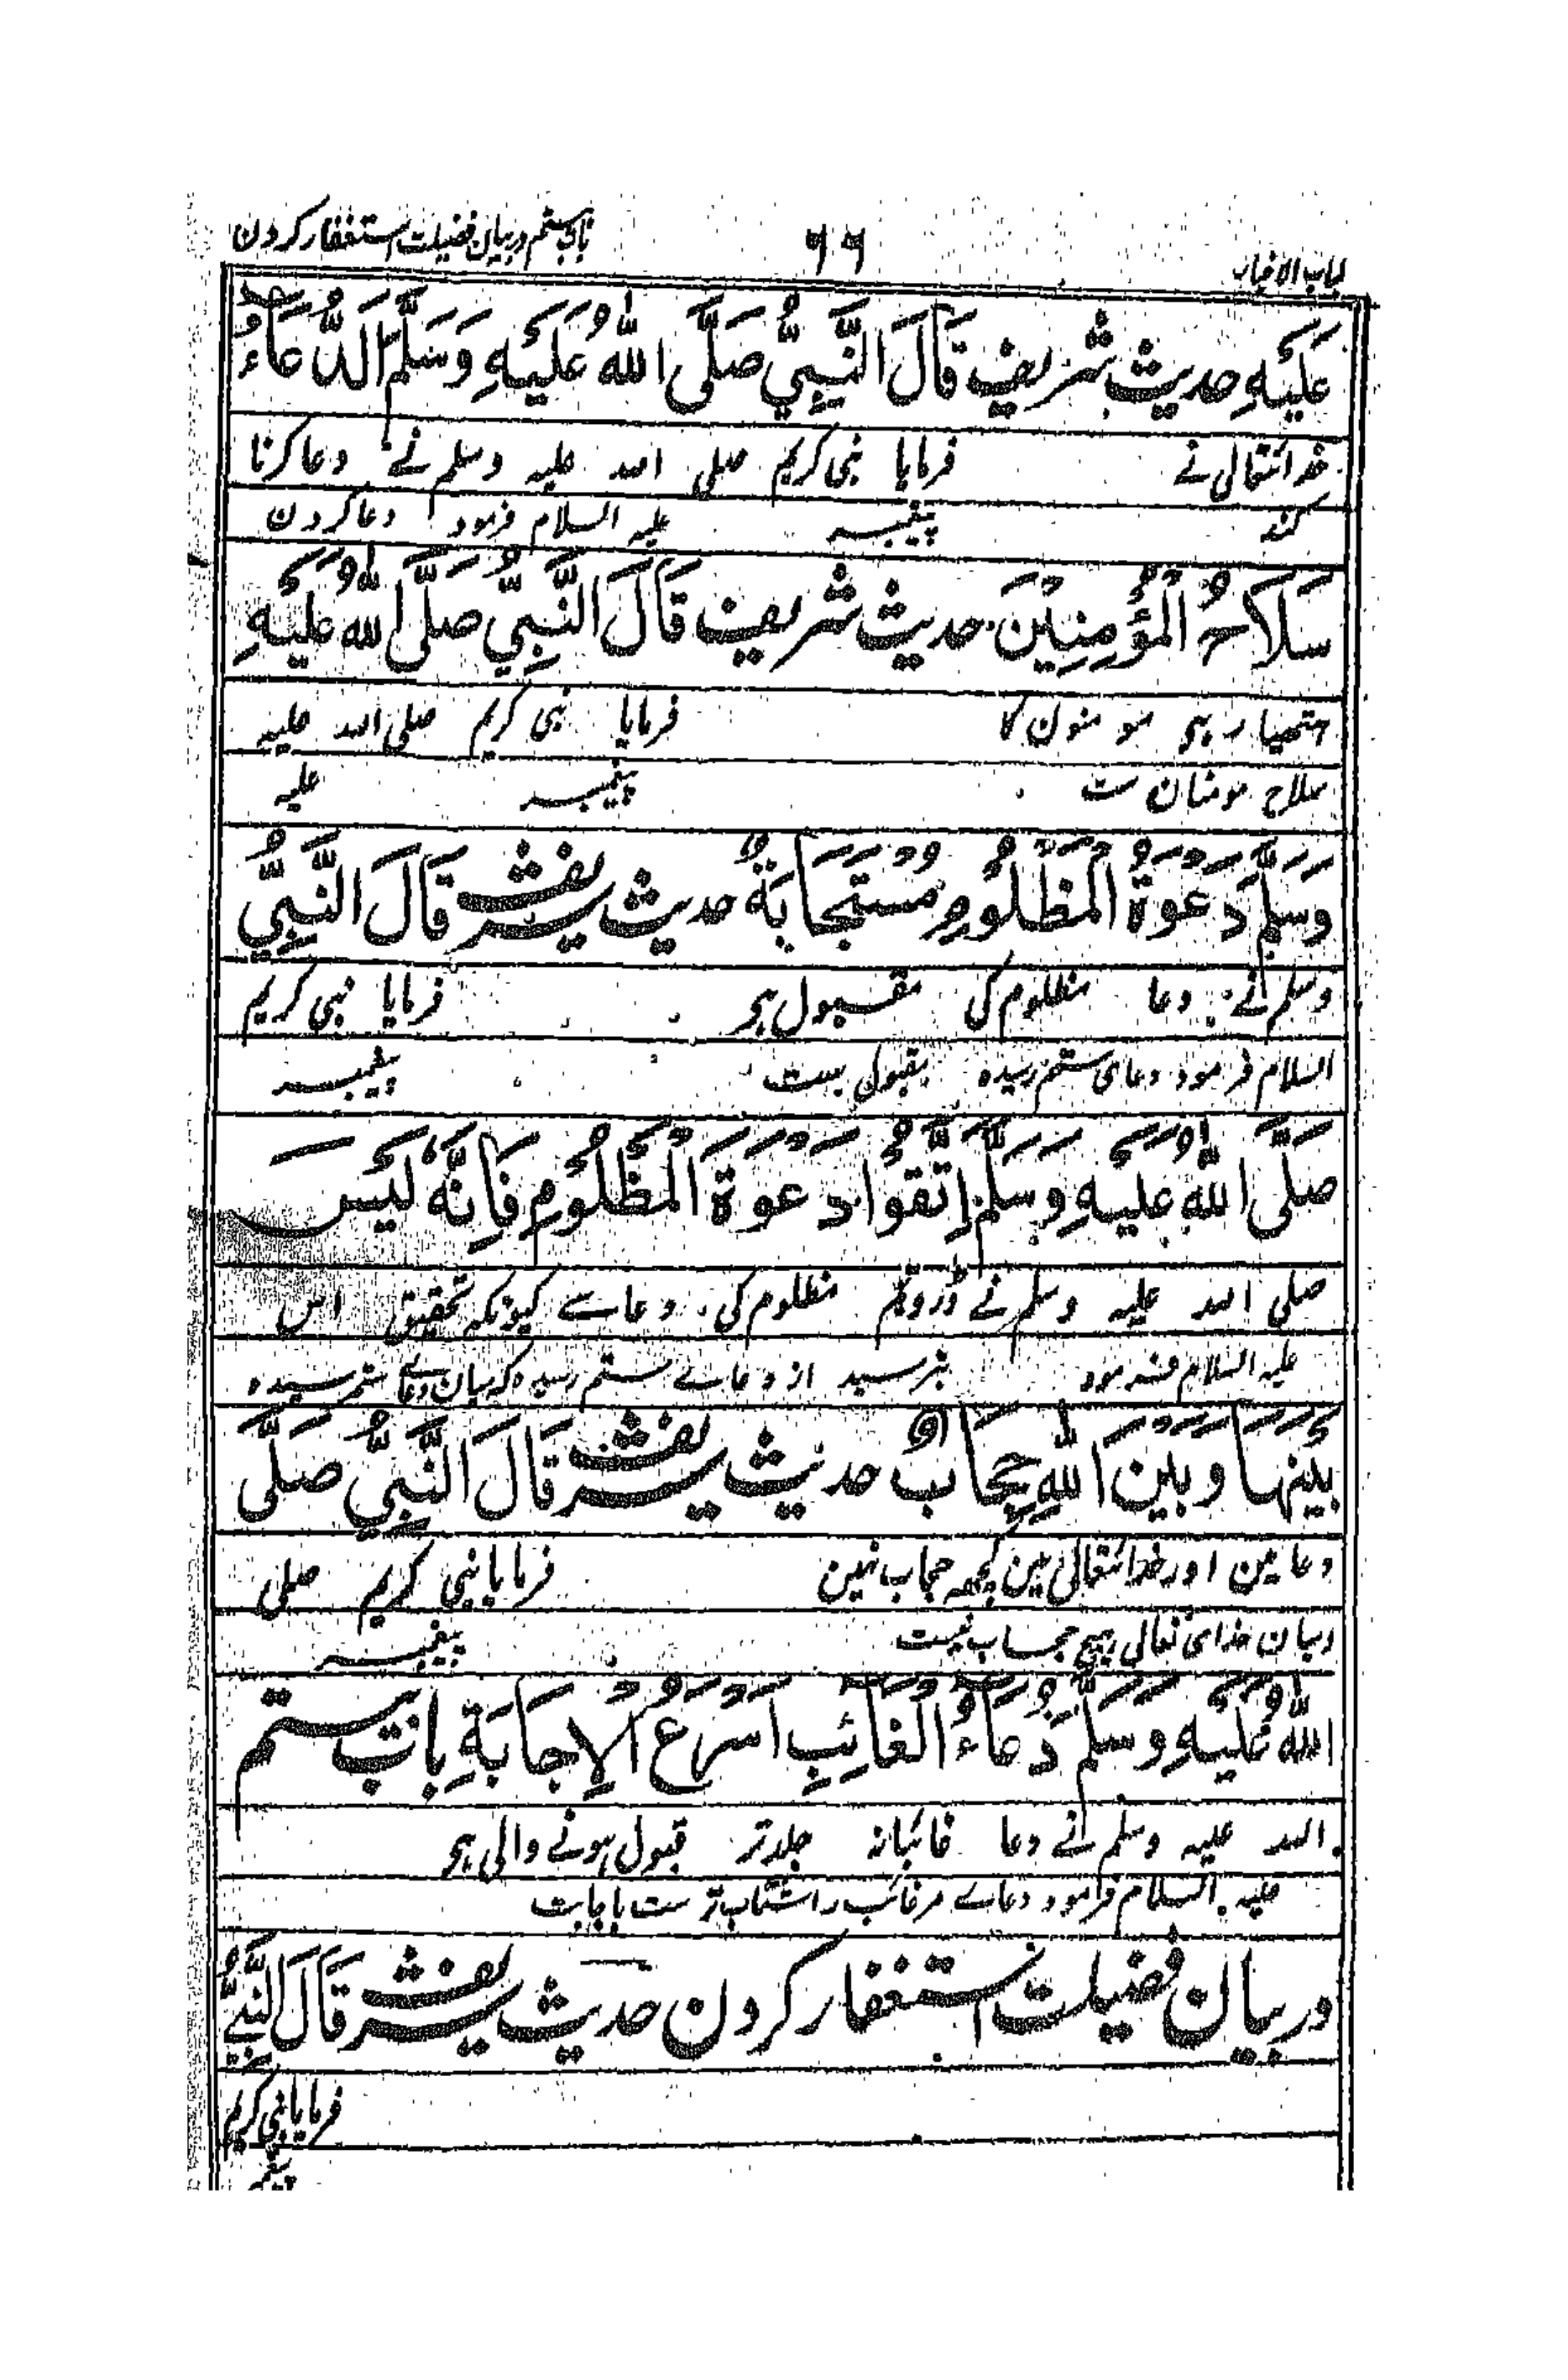 لباب الاخبار ۶۶ باب بستم دربیان فضیلت استغفار کردن
عَلَيْهِ حدیث شریف قَالَ النَّبِيُّ صَلَّى اللّٰهُ عَلَيْهِ وَسَلَّمَ اَلدُّعَاءُ
خدائتعالی نے فرمایا نبی کریم صلی اللہ علیہ وسلم نے دعا کرنا
کند پیغمبر علیہ السلام فرمود دعا کردن
سَلَاحُ الْمُؤْمِنِيْنَ حدیث شریف قَالَ النَّبِيُّ صَلَّى اللّٰهُ عَلَيْهِ
ہتھیار ہی مومنون کا فرمایا نبی کریم صلی اللہ علیہ
سلاح مومنان ست پیغمبر علیہ
وَسَلَّمَ دَعْوَةُ الْمَظْلُوْمِ مُسْتَجَابَةٌ حدیث شریف قَالَ النَّبِيُّ
وسلم نے دعا مظلوم کی مقبول ہی فرمایا نبی کریم
السلام فرمود دعای ستم رسیدہ مقبول ست پیغمبر
صَلَّى اللّٰهُ عَلَيْهِ وَسَلَّمَ اِتَّقُوْا دَعْوَةَ الْمَظْلُوْمِ فَاِنَّهٗ لَيْسَ
صلی اللہ علیہ وسلم نے ڈرو تم مظلوم کی دعا سے کیونکہ تحقیق اس
علیہ السلام فرمود بترسید از دعاے ستم رسیدہ کہ میان دعاے ستم رسیدہ
بَيْنَهَا وَبَيْنَ اللّٰهِ حِجَابٌ حدیث شریف قَالَ النَّبِيُّ صَلَّى
دعا مین اور خدائتعالی مین کچھ حجاب نہین فرمایا نبی کریم صلی
ومیان خدای تعالی ہیچ حجاب نیست پیغمبر
اللّٰهُ عَلَيْهِ وَسَلَّمَ دُعَاءُ الْغَائِبِ اَسْرَعُ الْاِجَابَةِ باب بستم
اللہ علیہ وسلم نے دعا غائبانہ جلد تر قبول ہونے والی ہی
علیہ السلام فرمود دعاے مر غائب را شتاب تر ست باجابت
دربیان فضیلت استغفار کردن حدیث شریف قَالَ النَّبِيُّ
فرمایا نبی کریم
پیغمبر